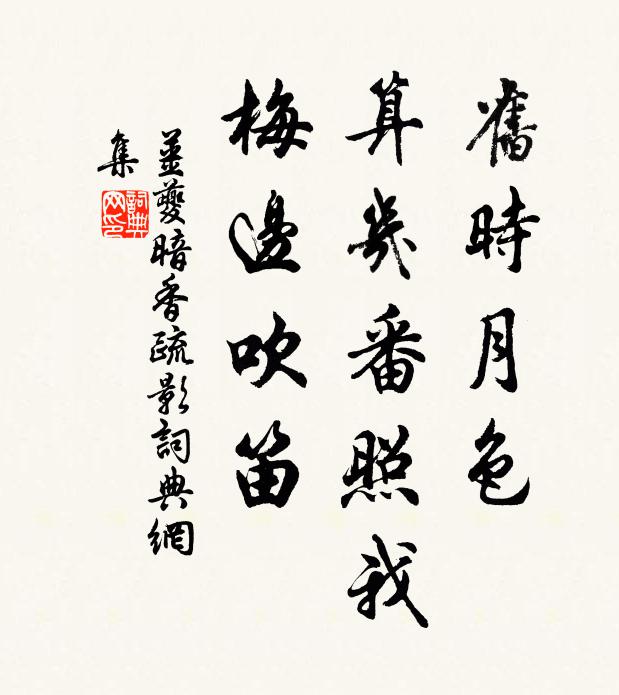 舊時月色
算幾番照我
梅邊吹笛
姜夔暗香疏影詞典網
集
詞典网印